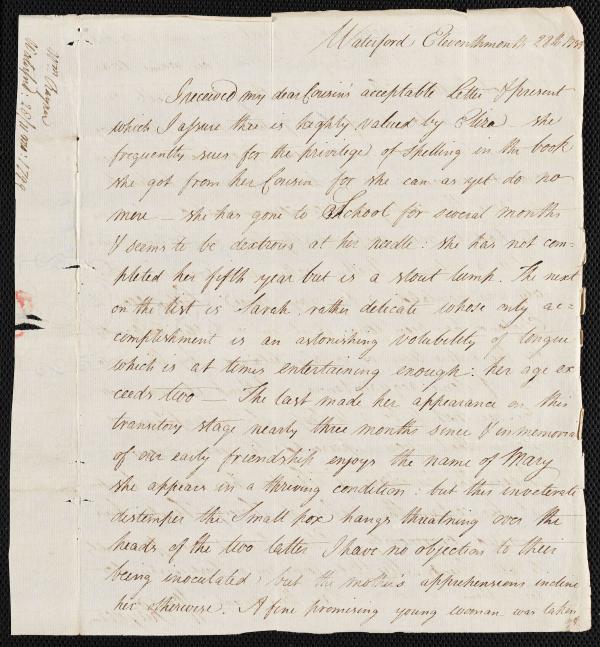 Waterford Eleventhmonth 28th 1799
I received my dear Cousin's acceptable Letter & present
which I assure thee is highly valued by Eliza - she
frequently sues for the privilege of Spelling in the book
she got from her Cousin for she can as yet do no
more - she has gone to School for several months
& seems to be dextrous at her needle: she has not com=
pleted her fifth year but is a stout lump. The next
on the list is Sarah rather delicate whose only ac=
complishment is an astonishing volubility of tongue
which is at times entertaining enough: her age ex
ceeds two - The last made her appearance on this
transitory stage nearly three months since & in memorial
of our early friendship enjoys the name of Mary
she appears in a thriving condition: but this inveterate
distemper the Small pox hangs threatning over the
heads of the two latter I have no objection to their
being inoculated, but the mother's apprehensions incline
her otherwise. A fine promising young woman was taken
Waterford 28/11 mo: 1799